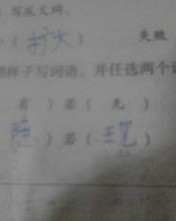 写反义词。
（扩大） 失败
样子写词语，并任选两个
有）若（无）
）若（